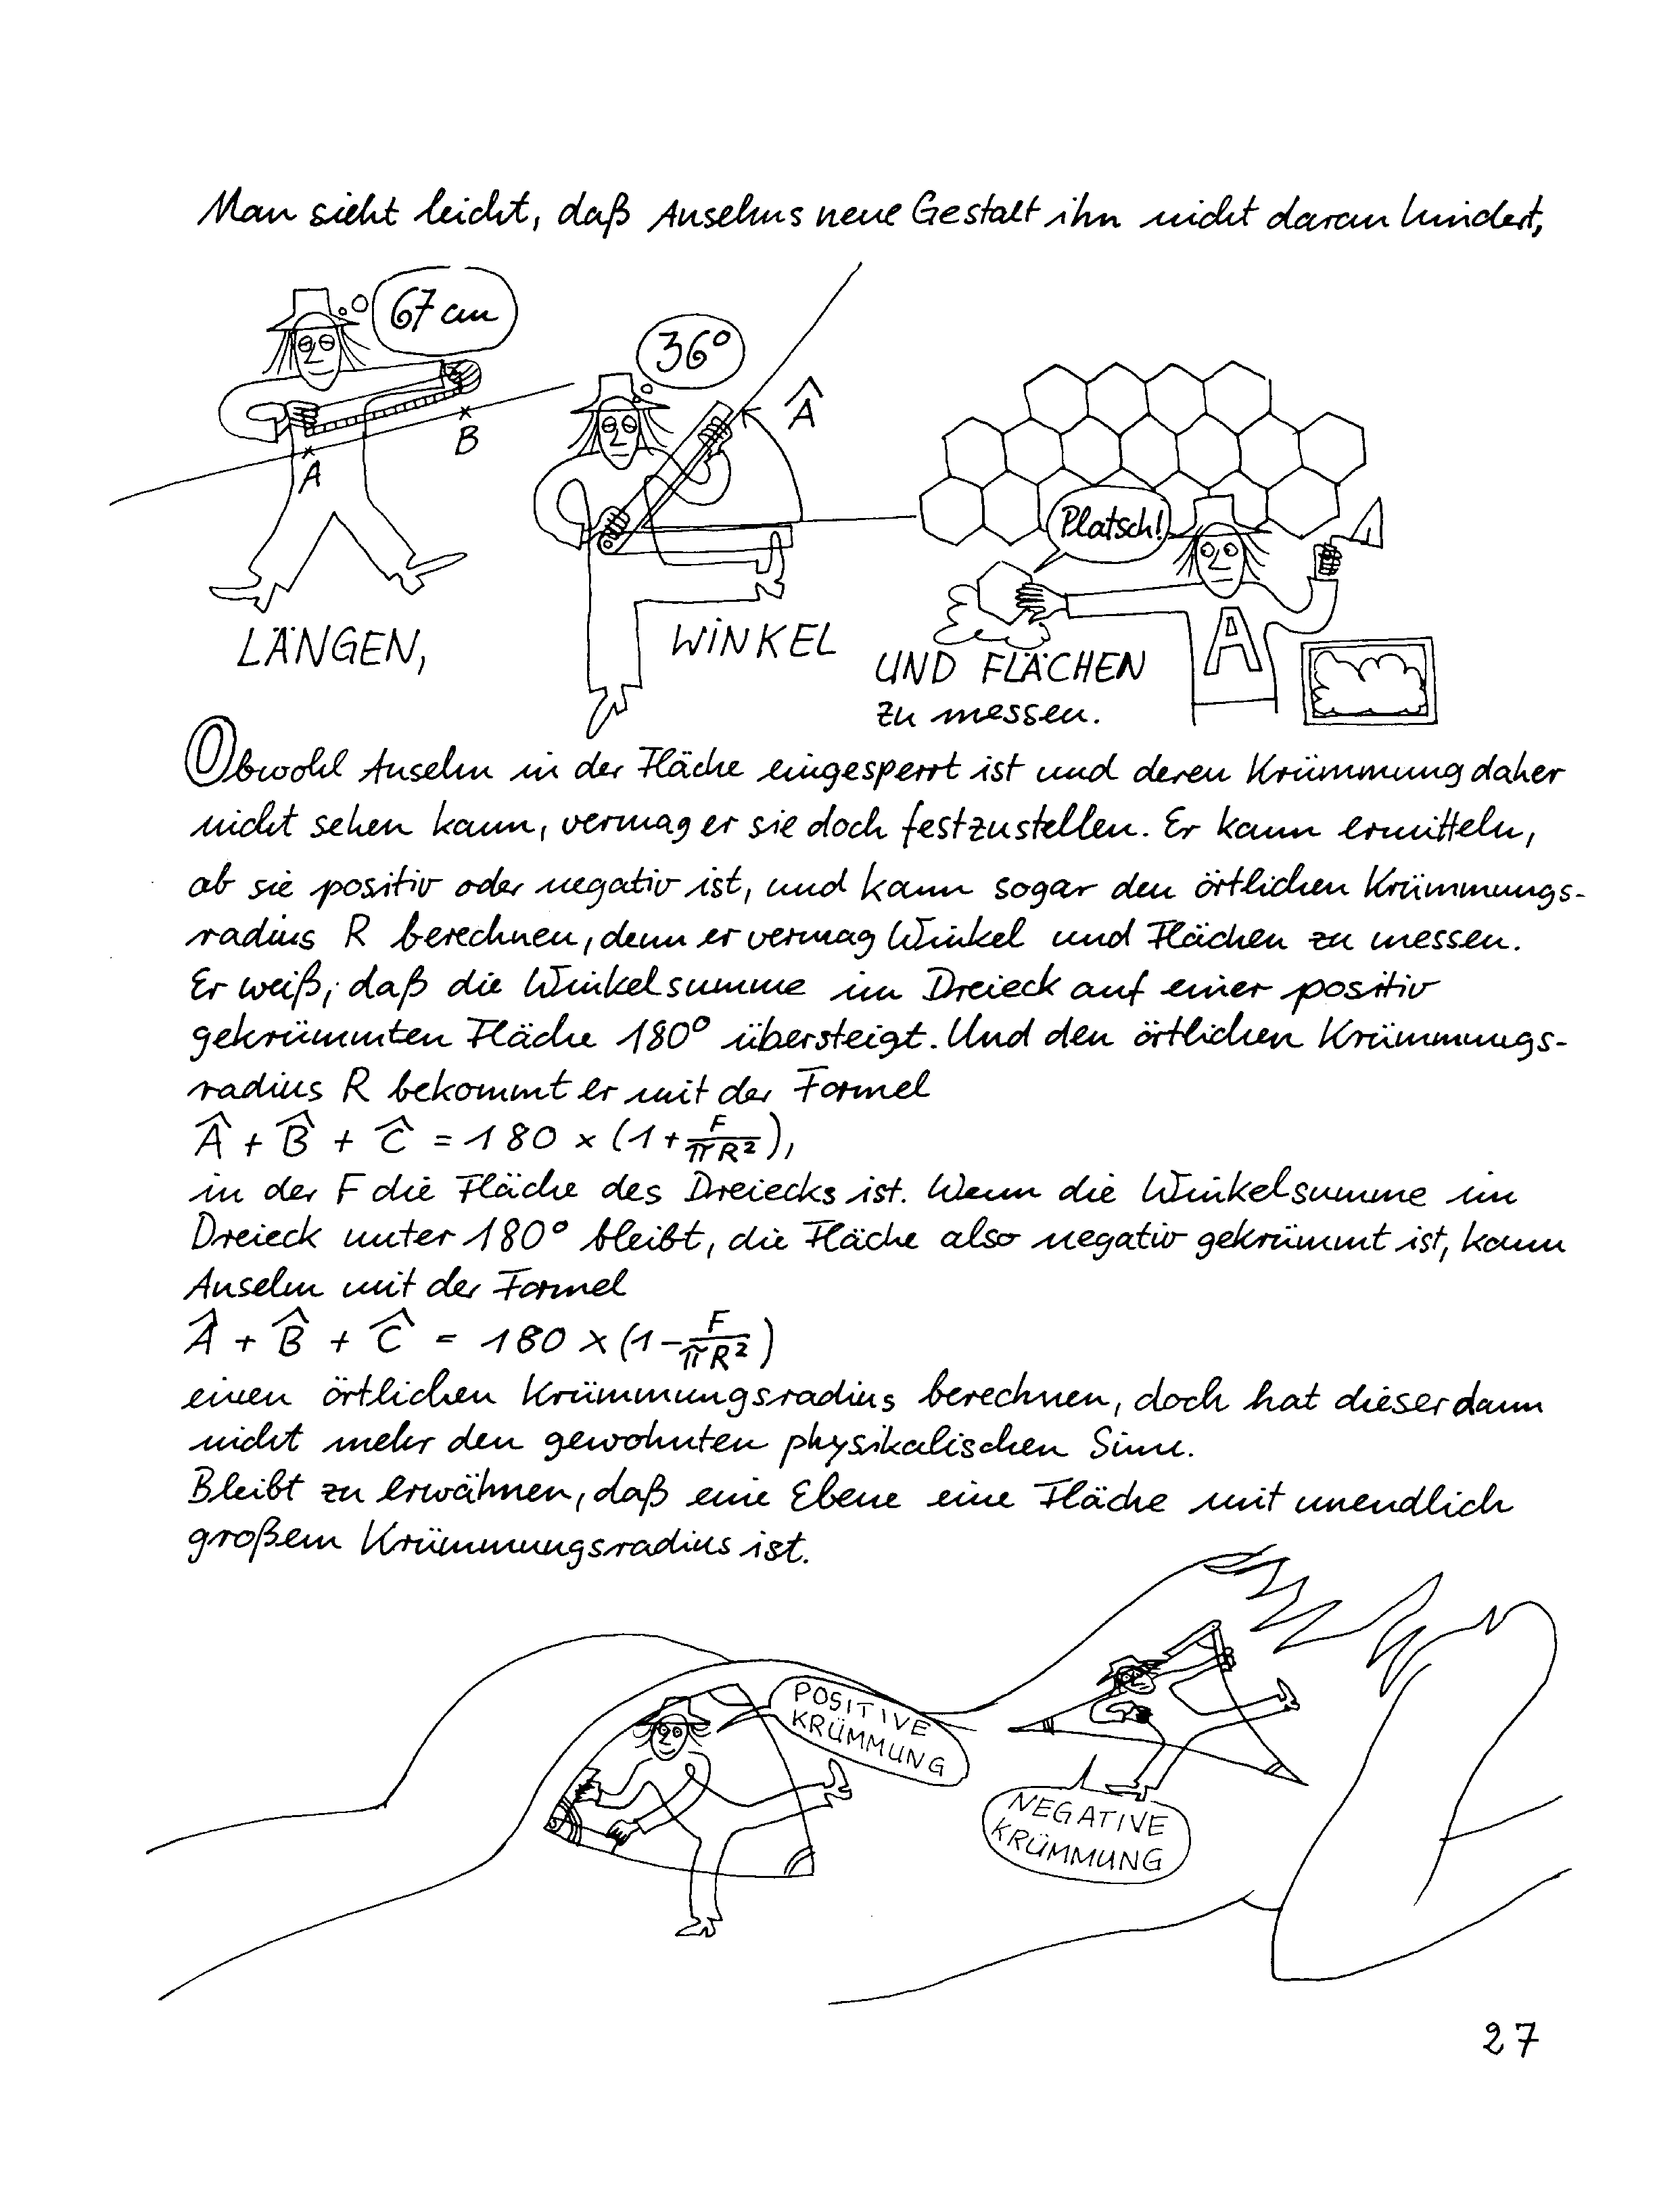 Man sieht leicht, daß Anselms neue Gestalt ihn nicht daran hindert,
67 cm
A
B
LÄNGEN,
36°
Â
WINKEL
Platsch!
A
UND FLÄCHEN
zu messen.
Obwohl Anselm in der Fläche eingesperrt ist und deren Krümmung daher
nicht sehen kann, vermag er sie doch festzustellen. Er kann ermitteln,
ob sie positiv oder negativ ist, und kann sogar den örtlichen Krümmungs-
radius R berechnen, denn er vermag Winkel und Flächen zu messen.
Er weiß, daß die Winkelsumme im Dreieck auf einer positiv
gekrümmten Fläche 180° übersteigt. Und den örtlichen Krümmungs-
radius R bekommt er mit der Formel
Â + B̂ + Ĉ = 180 × (1 + F/πR²),
in der F die Fläche des Dreiecks ist. Wenn die Winkelsumme im
Dreieck unter 180° bleibt, die Fläche also negativ gekrümmt ist, kann
Anselm mit der Formel
Â + B̂ + Ĉ = 180 × (1 - F/πR²)
einen örtlichen Krümmungsradius berechnen, doch hat dieser dann
nicht mehr den gewohnten physikalischen Sinn.
Bleibt zu erwähnen, daß eine Ebene eine Fläche mit unendlich
großem Krümmungsradius ist.
POSITIVE
KRÜMMUNG
NEGATIVE
KRÜMMUNG
27